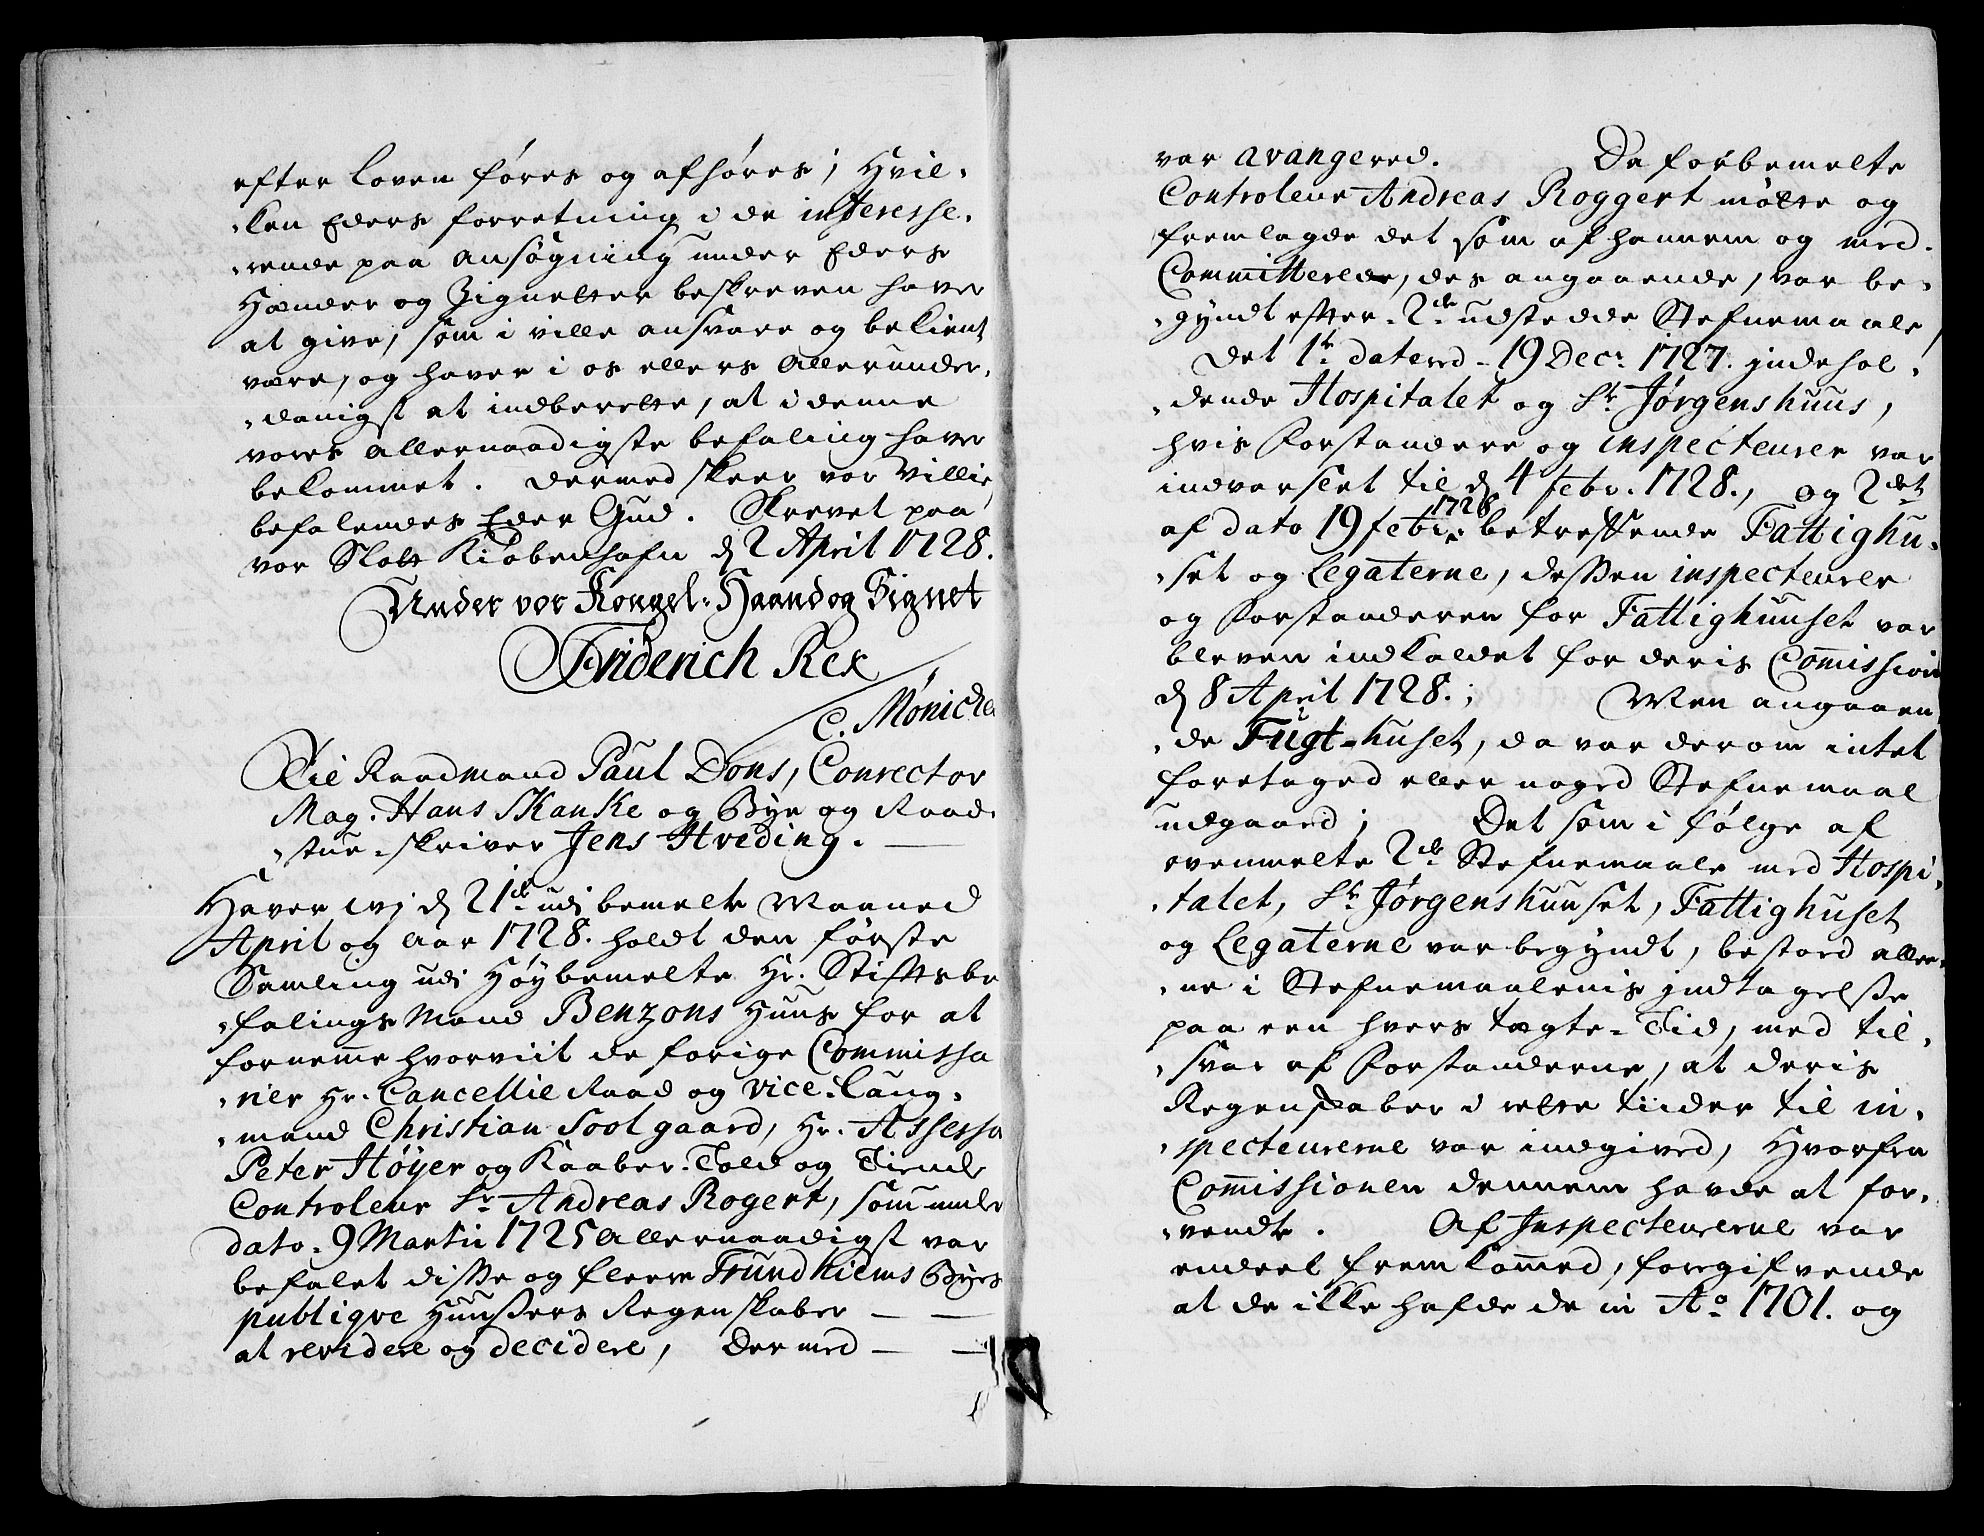 efter loven føres og afhøres; Hvil-
-ken Eders forretning i de interesse-
-rende paa ansøgning under Eders
Hænder og Zignetter beskreven haver
at give, som i ville ansvare og bekient
være, og haver i os ellers allerunder-
-danigst at indberette, at i denne
vores allernaadigste befaling haver
bekommet. Dermed skeer vor Villie,
befalendes Eder Gud. Skrevet paa
vor Slott Kiøbenhafn d 2 April 1728.
Under vor Kongel: Haand og Signet
Friderich Rex
C. Mónichen
Til Raadmand Paul Dons, Conrector
Mag. Hans Skanke og Bye og Raad-
-stue-skriver Jens Hveding.
Haver wj d 21de udj bemelte Maaned
April og aar 1728. holdt den første
Samling udi Høybemelte Hr. Stiftsbe
-falings Mand Benzons Huus for at
fornemme hvorviit de forige Commissa
-rier Hr. Cancellie Raad og vice-laug-
-mand Christian Sootgaard, Hr. Assessor
Peter Høyer og Kaaber-Told og Tiende
Controleur Sr. Andreas Rogert, som under
dato 9 Martii 1725 allernaadigst var
befalet disse og fleere Trundhiems Byes
publiqve Huussers Regenskaber
at revidere og decidere, der med
var avangered. Da forbemelte
Controleur Andreas Roggert møtte og
fremlagde det som af hannem og med-
Committerede, des angaaende, var be-
-gyndt efter 2de udstedde Stefnemaale,
Det 1te dateret 19 Decr. 1727. jndehol-
-dende Hospitalet og St. Jørgenshuus,
hvis Forstandere og inspecteurer var
indvarslet til d 4 febr. 1728., og 2det
af dato 19 febr. 1728 betreffende Fattighu-
-set og Legaterne, dessen inspecteurer
og Forstanderen for Fattighuuset var
bleven indkaldet for deris Commission
d 8 April 1728.; Men angaaen-
-de Tugt-huset, da var derom intet
foretaged eller noged Stefnemaal
udgaaed; Det som i følge af
ovenmelte 2de Stefnemaale med Hospi-
-talet, St. Jørgenshuuset, Fattighuset
og Legaterne var begyndt, bestoed allee-
-ne i Stefnemaalenis jndtagelsse
paa een hvers tægte-Tid, med til-
-svar af Forstanderne, at deris
Regenskaber i rette tiider til in-
-specteurerne var indgived, Hvorfra
Commissionen dennem havde at for-
-vendte. Af Inspecteurerne var
endeel fremkommed, foregifvende
at de ikke hafde de in Ao. 1701. og